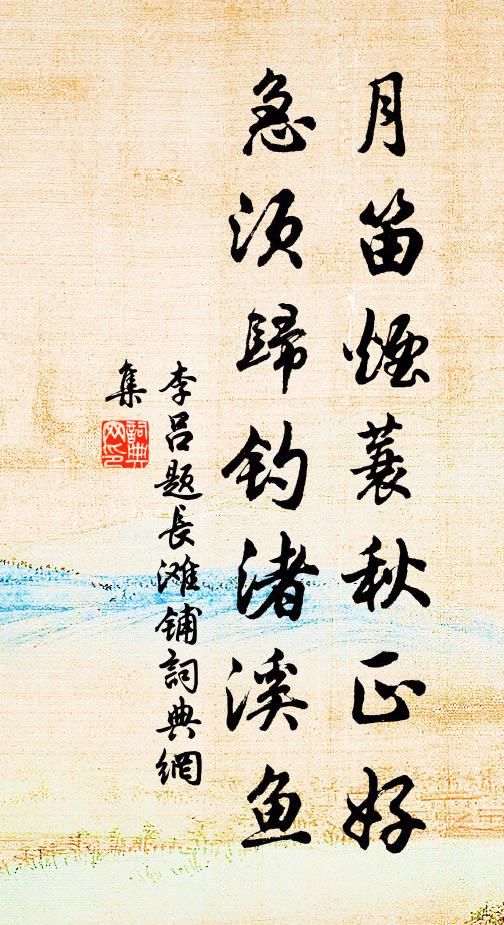 月笛煙蓑秋正好
急须歸钓渚溪鱼
李吕题長滩铺詞典網
集
詞典
网印